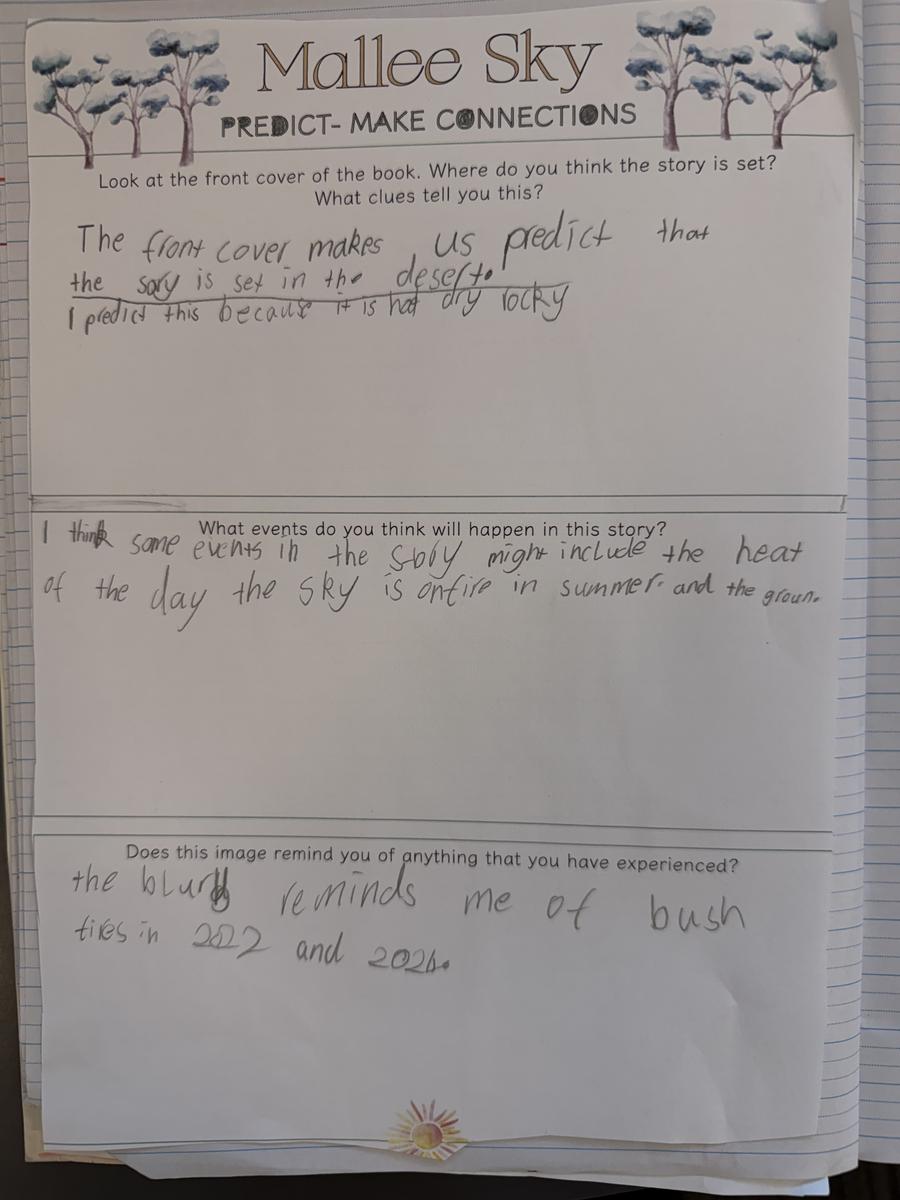 Mallee Sky
PREDICT- MAKE CONNECTIONS
Look at the front cover of the book. Where do you think the story is set?
What clues tell you this?
The front cover makes us predict that
the sory is set in the desert.
I predict this because it is hot dry rocky
What events do you think will happen in this story?
I think some events in the story might include the heat
of the day the sky is onfire in summer. and the groun.
Does this image remind you of anything that you have experienced?
the blurb reminds me of bush
fires in 2022 and